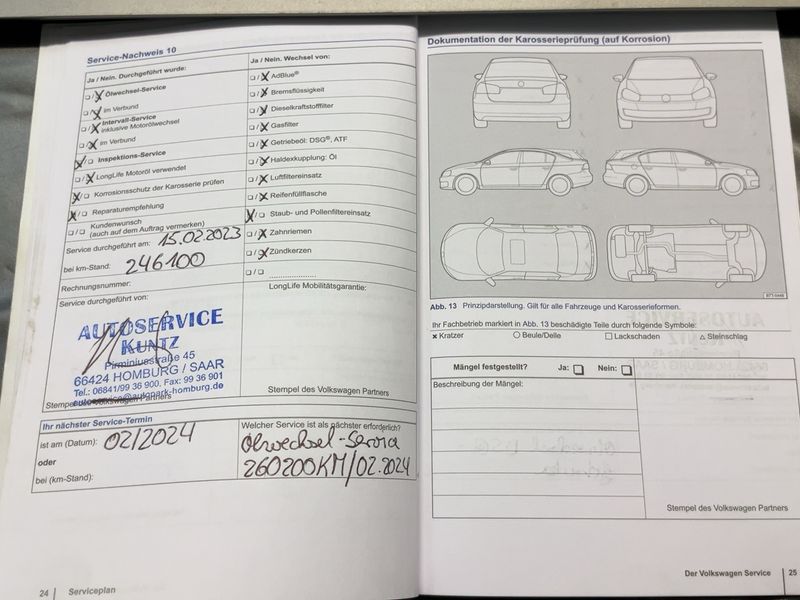 Service-Nachweis 10
Ja / Nein. Durchgeführt wurde:
Ölwechsel-Service
im Verbund
Intervall-Service
inklusive Motorölwechsel
im Verbund
Inspektions-Service
LongLife Motoröl verwendet
Korrosionsschutz der Karosserie prüfen
Reparaturempfehlung
Kundenwunsch
(auch auf dem Auftrag vermerken)
Service durchgeführt am: 15.02.2023
bei km-Stand: 246100
Rechnungsnummer:
Service durchgeführt von:
AUTOSERVICE
KUNTZ
Pirminiusstraße 45
66424 HOMBURG / SAAR
Tel.: 06841/99 36 900, Fax: 99 36 901
autoservice@autopark-homburg.de
Stempel des Volkswagen Partners
Ja / Nein. Wechsel von:
AdBlue®
Bremsflüssigkeit
Dieselkraftstofffilter
Gasfilter
Getriebeöl: DSG®, ATF
Haldexkupplung: Öl
Luftfiltereinsatz
Reifenfüllflasche
Staub- und Pollenfiltereinsatz
Zahnriemen
Zündkerzen
LongLife Mobilitätsgarantie:
Stempel des Volkswagen Partners
Ihr nächster Service-Termin
ist am (Datum): 02/2024
oder
bei (km-Stand):
Welcher Service ist als nächster erforderlich?
Ölwechsel-Service
260200KM/02.2024
24 | Serviceplan
Dokumentation der Karosserieprüfung (auf Korrosion)
B7T-0446
Abb. 13 Prinzipdarstellung. Gilt für alle Fahrzeuge und Karosserieformen.
Ihr Fachbetrieb markiert in Abb. 13 beschädigte Teile durch folgende Symbole:
× Kratzer ○ Beule/Delle □ Lackschaden △ Steinschlag
Mängel festgestellt? Ja: □ Nein: □
Beschreibung der Mängel:
Stempel des Volkswagen Partners
Der Volkswagen Service | 25